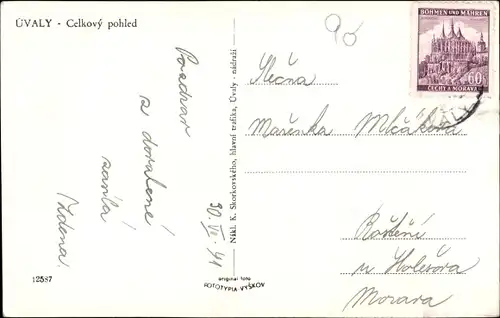 ÚVALY - Celkový pohled
90
BÖHMEN UND MÄHREN
60
ČECHY A MORAVA
ÚVALY
Slečna
Mařenka Mlčáková
u Holešova
Morava
Pozdrav
z dovolené
Zdena.
30. VII. 41
Nákl. K. Skorkovského, hlavní trafika, Úvaly - nádraží
original foto
FOTOTYPIA-VYŠKOV
12587